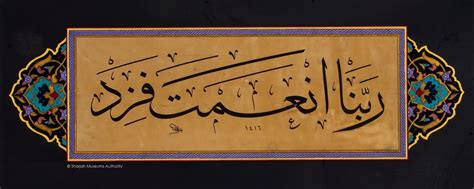 ربنا انعمت فزد
١٤١٦
© Sharjah Museums Authority